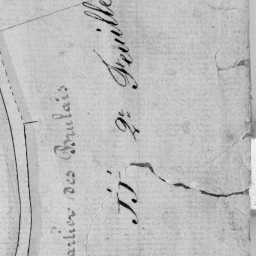 artier des Brulais
2e Feuille